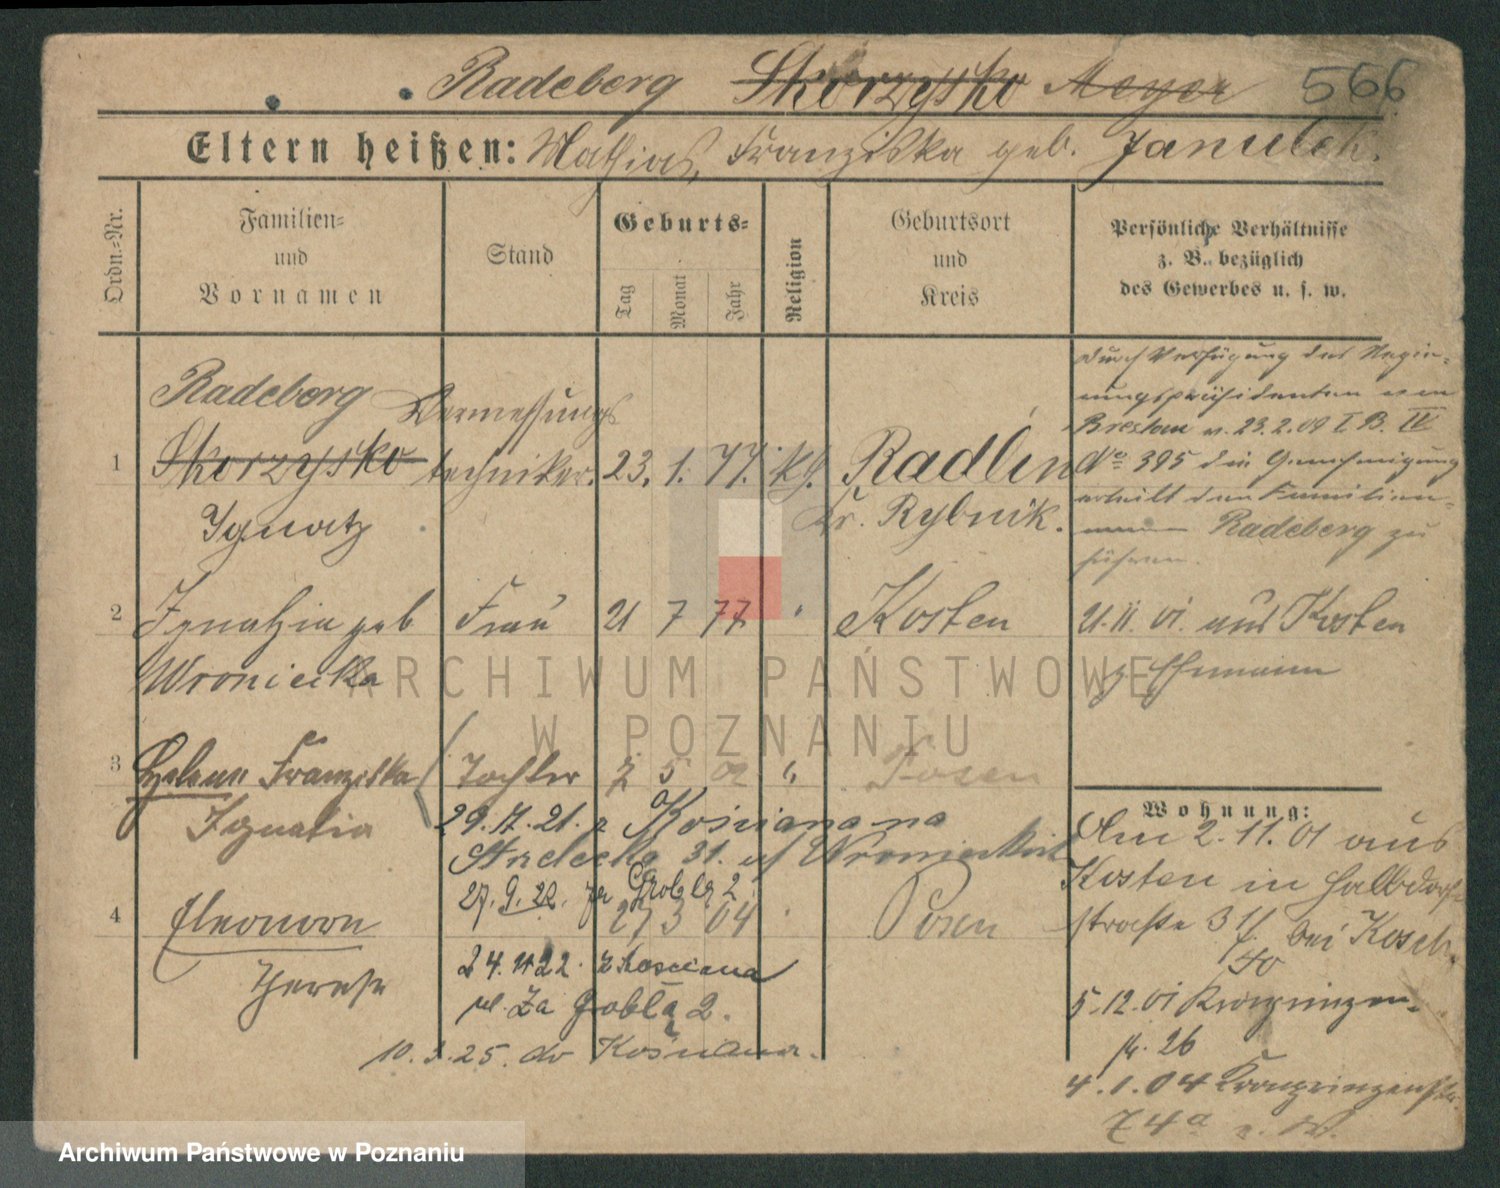 Radeberg Skorzysko Meyer 566
Eltern heißen: Mathias, Franziska geb. Janulek.
Ordn.-Nr.
Familien-
und
Vornamen
Stand
Geburts-
Tag
Monat
Jahr
Religion
Geburtsort
und
Kreis
Persönliche Verhältnisse
z. B. bezüglich
des Gewerbes u. s. w.
1
Radeberg
Skorzysko
Ignatz
Vermessungs
techniker.
23. 1. 77. kg.
Radlin
Kr. Rybnik.
Durch Verfügung des Regie-
rungspräsidenten von
Breslau v. 23.2.09 I B. IV
No 395 die Genehmigung
erteilt den Familien-
namen Radeberg zu
führen.
2
Ignatzia geb
Wroniecka
Frau
21 7 77 "
Kosten
21.11.01. aus Kosten
z Ehemann
3
Helene Franziska
Ignatia
Tochter
7 5 02 "
Posen
29.17.21. z Kosciana na
Strzelecką 31. u/ Wronieckich
27.9.22. za Groblą 2
4
Eleonore
Therese
27 3 04 "
Posen
24. 11 22. z Kosciana
ul. Za Groblą 2.
10.3.25. do Kościana.
Wohnung:
Am 2.11.01 aus
Kosten in Halbdorf-
strasse 31 bei Koseb.
40
5.12.01 Kronprinzen-
str. 26
4.1.04 Kronprinzenstr.
74a
ARCHIWUM PAŃSTWOWE
W POZNANIU
Archiwum Państwowe w Poznaniu